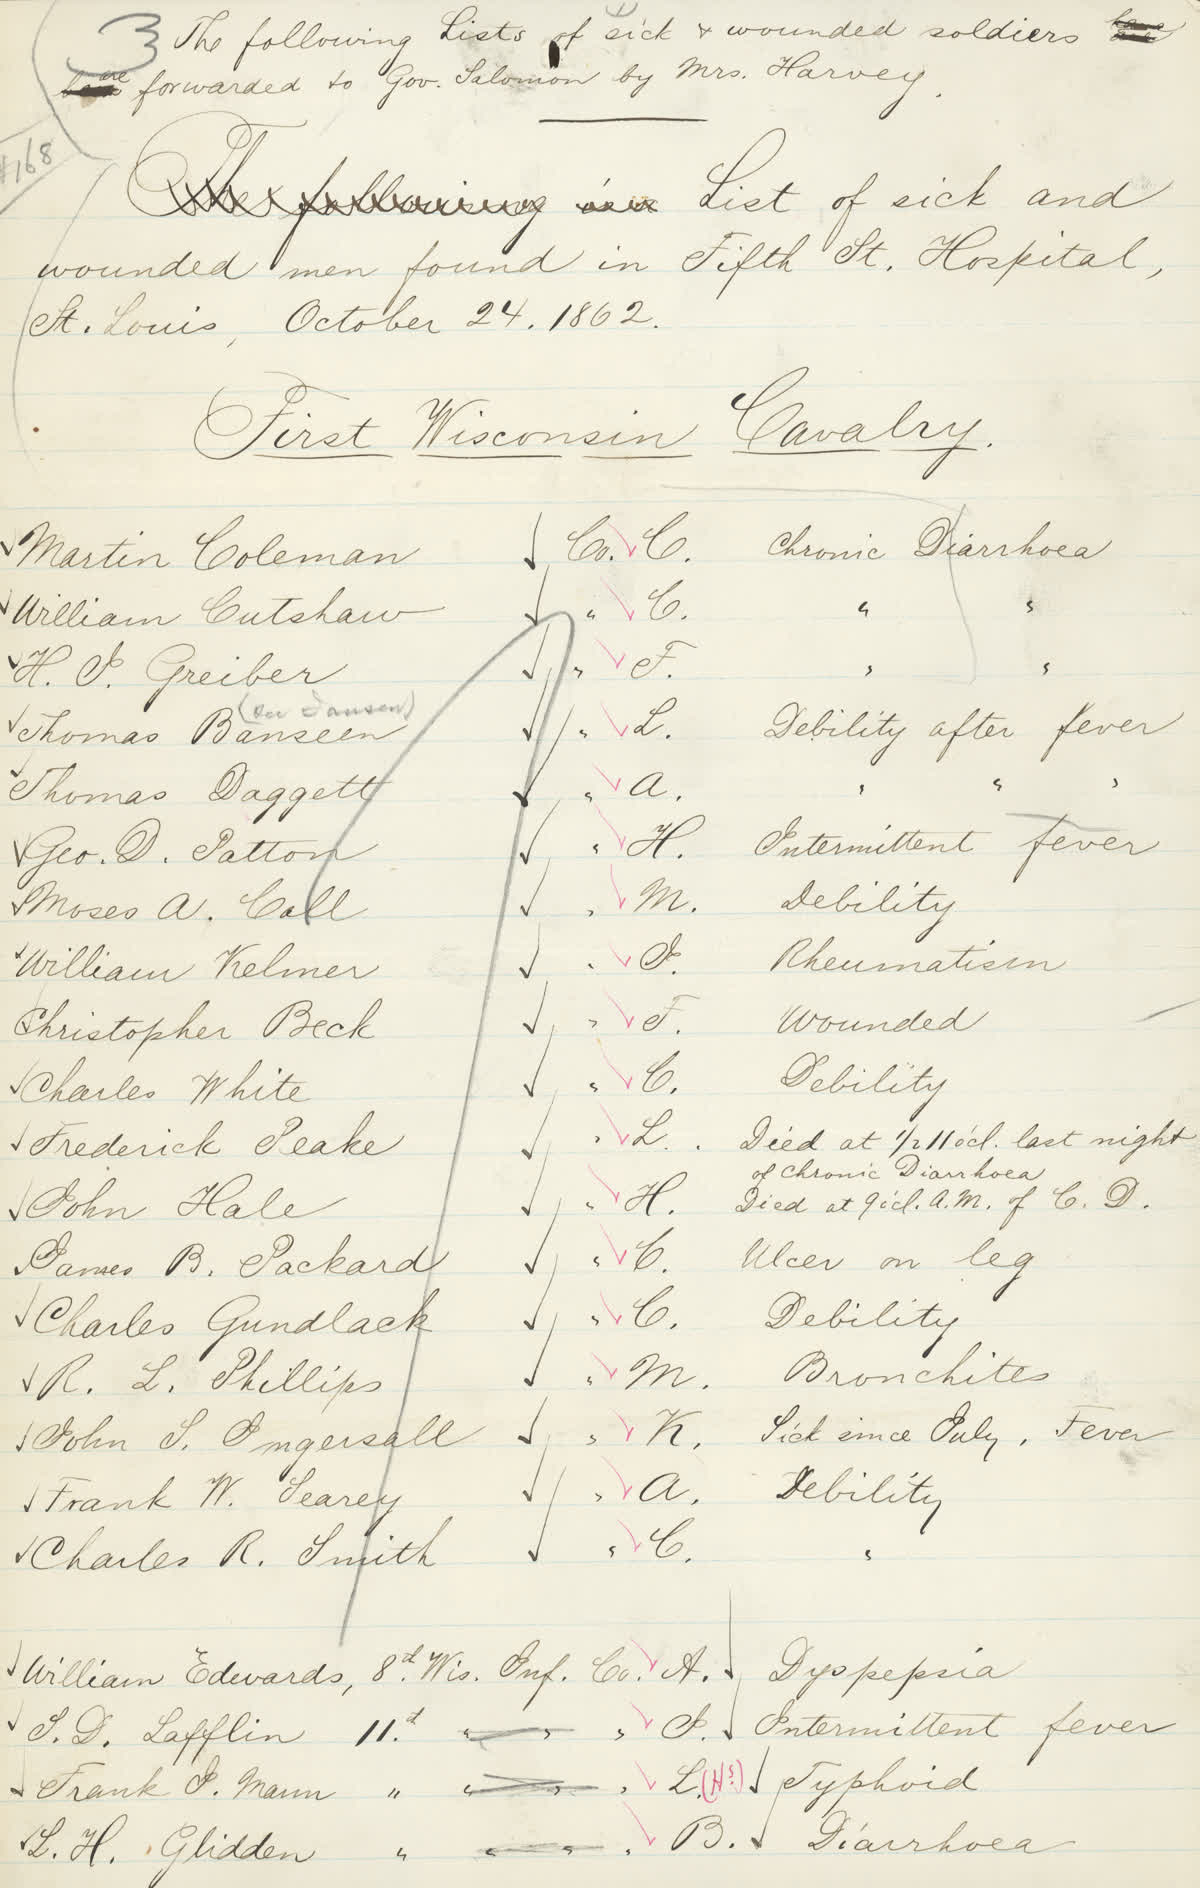 3 The following Lists of sick & wounded soldiers
are forwarded to Gov. Salomon by Mrs. Harvey.
#168
The following is a List of sick and
wounded men found in Fifth St. Hospital,
St. Louis, October 24. 1862.
First Wisconsin Cavalry.
Martin Coleman Co. C. Chronic Diarrhoea
William Cutshaw " C. " "
H. J. Greiber " F. " "
(or Jansen)
Thomas Banseen " L. Debility after fever
Thomas Daggett " A. " " "
Geo. D. Patton " H. Intermittent fever
Moses A. Call " M. Debility
William Kelmer " I. Rheumatism
Christopher Beck " F. Wounded
Charles White " C. Debility
Frederick Peake " L. Died at 1/2 11 ocl. last night
of Chronic Diarrhoea
John Hale " H. Died at 9 ocl. A.M. of C. D.
James B. Packard " C. Ulcer on leg
Charles Gundlack " C. Debility
R. L. Phillips " M. Bronchites
John S. Ingersall " K. Sick since July, Fever
Frank W. Searey " A. Debility
Charles R. Smith " C. "
William Edwards, 8d. Wis. Inf. Co. A. Dyspepsia
S. D. Lafflin 11.d " " " I. Intermittent fever
Frank J. Mann " " " " L. (H?) Typhoid
L. H. Glidden " " " " B. Diarrhoea